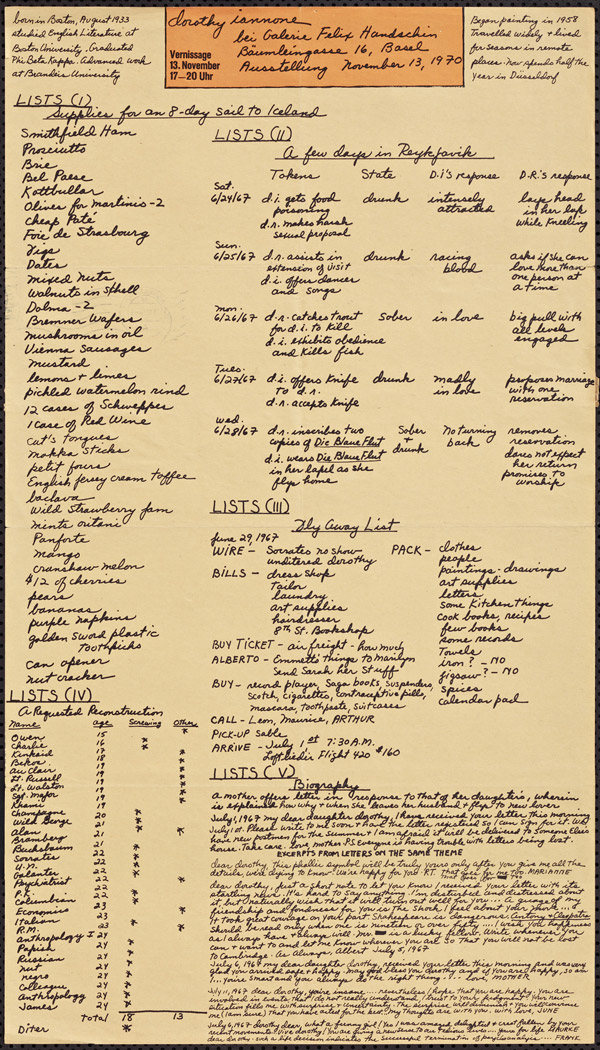 born in Boston, August 1933
studied English Literature at
Boston University. Graduated
Phi Beta Kappa. Advanced work
at Brandeis University
dorothy iannone
bei Galerie Felix Handschin
Bäumleingasse 16, Basel
Ausstellung November 13, 1970
Vernissage
13. November
17–20 Uhr
Began painting in 1958
Travelled widely + lived
for seasons in remote
places. Now spends half the
year in Düsseldorf
LISTS (I)
Supplies for an 8-day sail to Iceland
Smithfield Ham
Prosciutto
Brie
Bel Paese
Kottbullar
Olives for martinis - 2
Cheap Paté
Foie de Strasbourg
Figs
Dates
mixed nuts
Walnuts in shell
Dolma - 2
Bremner Wafers
mushrooms in oil
Vienna Sausages
mustard
lemons + limes
pickled watermelon rind
12 cases of Schweppes
1 case of Red Wine
cat's tongues
mokka sticks
petit fours
English jersey cream toffee
baclava
Wild Strawberry jam
mints
Panforte
mango
cranshaw melon
$12 of cherries
pears
bananas
purple napkins
golden sword plastic
toothpicks
can opener
nut cracker
LISTS (II)
A few days in Reykjavik
Tokens State D.i's response D.R.'s response
Sat.
6/24/67 d.i. gets food drunk intensely lays head
poisoning attracted in her lap
d.r. makes harsh while kneeling
sexual proposal
Sun.
6/25/67 d.r. assists in drunk racing asks if she can
extension of visit blood love more than
d.i. offers dances one person at
and songs a time
Mon.
6/26/67 d.r. catches trout Sober in love big pull with
for d.i. to kill all levels
d.i. exhibits obedience engaged
and kills fish
Tues.
6/27/67 d.i. offers knife drunk madly proposes marriage
to d.r. in love with one
d.r. accepts knife reservation
Wed.
6/28/67 d.r. inscribes two Sober No turning removes
copies of Die Blaue Flut + back reservation
d.i. wears Die Blaue Flut drunk does not expect
in her lapel as she her return
flys home promises to
worship
LISTS (III)
Fly Away List
June 29, 1967
WIRE – Socrates no show
undeterred dorothy
BILLS – dress shop
Tailor
laundry
art supplies
hairdresser
8th St. Bookshop
PACK – clothes
people
paintings - drawings
art supplies
letters
some kitchen things
cook books, recipes
few books
some records
Towels
iron? – NO
jigsaw? – NO
spices
calendar pad
BUY TICKET – air freight - how much
ALBERTO – Emmett's things to Marilyn
Send Sarah her stuff
BUY – record player, Saga books, suspenders,
Scotch, cigarettes, contraceptive pills,
mascara, toothpaste, suitcases
CALL – Lem, Maurice, ARTHUR
PICK-UP sable
ARRIVE – July 1st 7:30 A.M.
Loftleidir Flight 420 $160
LISTS (IV)
A Requested Reconstruction
Name age Screwing Other
Owen 15 *
Charlie 16 *
Kinkaid 17 *
Bikoe 18 *
Au Clair 19 *
Lt. Russell 19 *
Lt. Walston 19 *
Sgt. Major 19 *
Khanie 19 *
Champagne 20 *
Wild George 21 *
Alan 21 * *
Bromberg 21
Buchsbaum 21 *
Socrates 22 *
L.M. 22 *
Galanter 22 *
Psychiatrist 22 *
P.R. 22 *
Columbian 22 *
Economics 23 *
Italian 23 *
R.M. 23 *
anthropology I 24 *
Pupil 24 *
Russian 24 *
nut 24 *
negro 24 *
Colleague 24 *
Anthropology 24 *
James 24 *
Total 18 13
Diter *
LISTS (V)
Biography
A mother offers letter in response to that of her daughter's, wherein
is explained how why + when she leaves her husband + flys to new lover
July 1, 1967 my dear daughter dorothy, I have received your letter this morning
July 1st. Please write to me soon + have the letter registered so I can sign for it. We
have new postmen for the summer + I am afraid it will be delivered to someone else's
house. Take care. Love mother. P.S. Everyone is having trouble with letters being lost.
EXCERPTS FROM LETTERS ON THE SAME THEME
dear dorothy, This phallic symbol will be truly yours only after you give me all the
details we're dying to know. We're happy for you. MARIANNE
dear dorothy, Just a short note to let you know I received your letter with its
startling news. It's hard to say anything. I'm disturbed and distressed about
it, but naturally wish that it will turn out well for you
friendship and fondness for you is the shock I feel about your
It took great courage on your part. Shakespeare is dangerous. Antony + Cleopatra
should be read only when one is nineteen or over fifty ... I wish you happiness
as I always have + always will. Mr. is a lucky fellow. Write when you
can + want to and let me know where you are so that you will not be lost
to Cambridge. As Always, Albert July 5, 1967
July 6, 1967 my dear daughter dorothy, received your letter this morning and was very
glad you arrived safe + happy. May god bless you dorothy and if you are happy, so am
I... you're smart and you always do the right thing ... Love, MOTHER
July 11, 1967 dear dorothy, you're insane .... nevertheless I hope that you are happy. You are
involved in events that I do not really understand, I trust to your judgment. Your new
situation fills me with surprise + uncertainty.
me (I am sure) that you have acted for the best. My thoughts are with you. with love, JUNE
July 6, 1967 dorothy dear, what a funny girl! Yes I was amazed delighted + crest fallen by your
FRANK